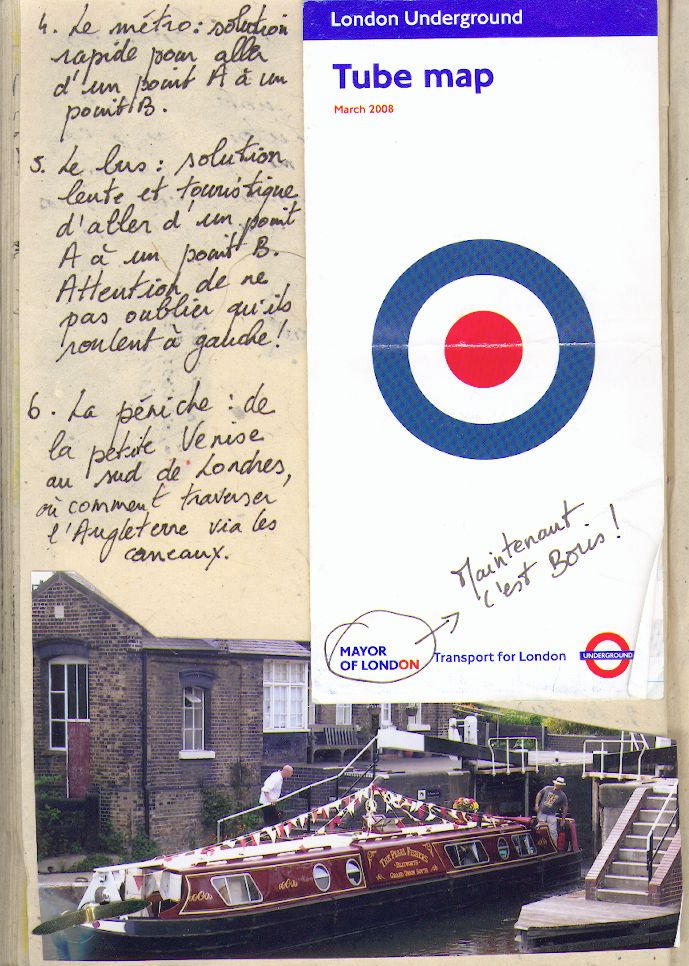 4. Le métro : solution
rapide pour aller
d'un point A à un
point B.
5. Le bus : solution
lente et touristique
d'aller d'un point
A à un point B.
Attention de ne
pas oublier qu'ils
roulent à gauche !
6. La péniche : de
la petite Venise
au sud de Londres,
où comment traverser
l'Angleterre via les
caneaux.
London Underground
Tube map
March 2008
Maintenant
c'est Boris !
MAYOR
OF LONDON
Transport for London
UNDERGROUND
THE PEARL FISHERS